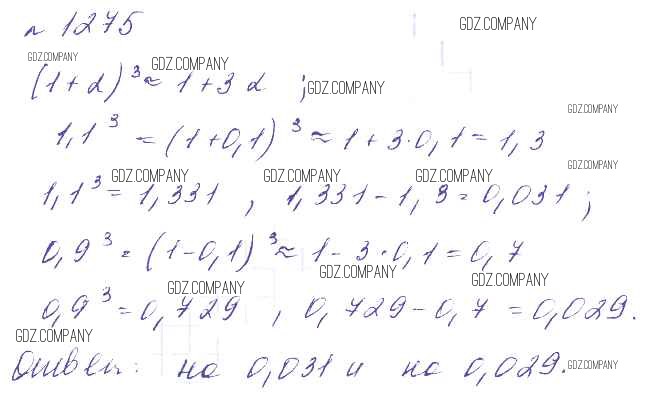 № 1275
GDZ.COMPANY
GDZ.COMPANY
GDZ.COMPANY
(1+α)³ ≈ 1+3α ;
GDZ.COMPANY
GDZ.COMPANY
1,1³ = (1+0,1)³ ≈ 1+3·0,1 = 1,3
GDZ.COMPANY
GDZ.COMPANY
GDZ.COMPANY
GDZ.COMPANY
1,1³ = 1,331 , 1,331 - 1,3 = 0,031 ;
0,9³ = (1-0,1)³ ≈ 1-3·0,1 = 0,7
GDZ.COMPANY
GDZ.COMPANY
GDZ.COMPANY
0,9³ = 0,729 , 0,729 - 0,7 = 0,029.
GDZ.COMPANY
Ответ: на 0,031 и на 0,029.
GDZ.COMPANY